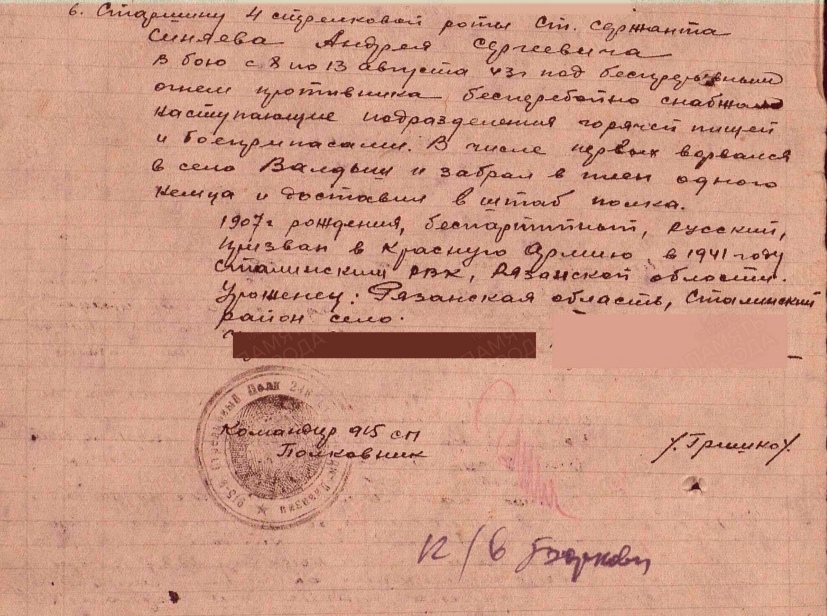 6. Старшину 4 стрелковой роты Ст. сержанта
Синяева Андрея Сергеевича
В бою с 8 по 13 августа 43г под беспрерывным
огнем противника бесперебойно снабжал
наступающие подразделения горячей пищей
и боеприпасами. В числе первых ворвался
в село Валдыш и забрал в плен одного
немца и доставил в штаб полка.
1907г рождения, беспартийный, русский,
призван в Красную Армию в 1941 году
Сталинским РВК, Рязанской области.
Уроженец: Рязанская область, Сталинский
район село.
Командир 915 сп
Полковник
/Гришко/.
915-й Стрелковый Полк
К/В